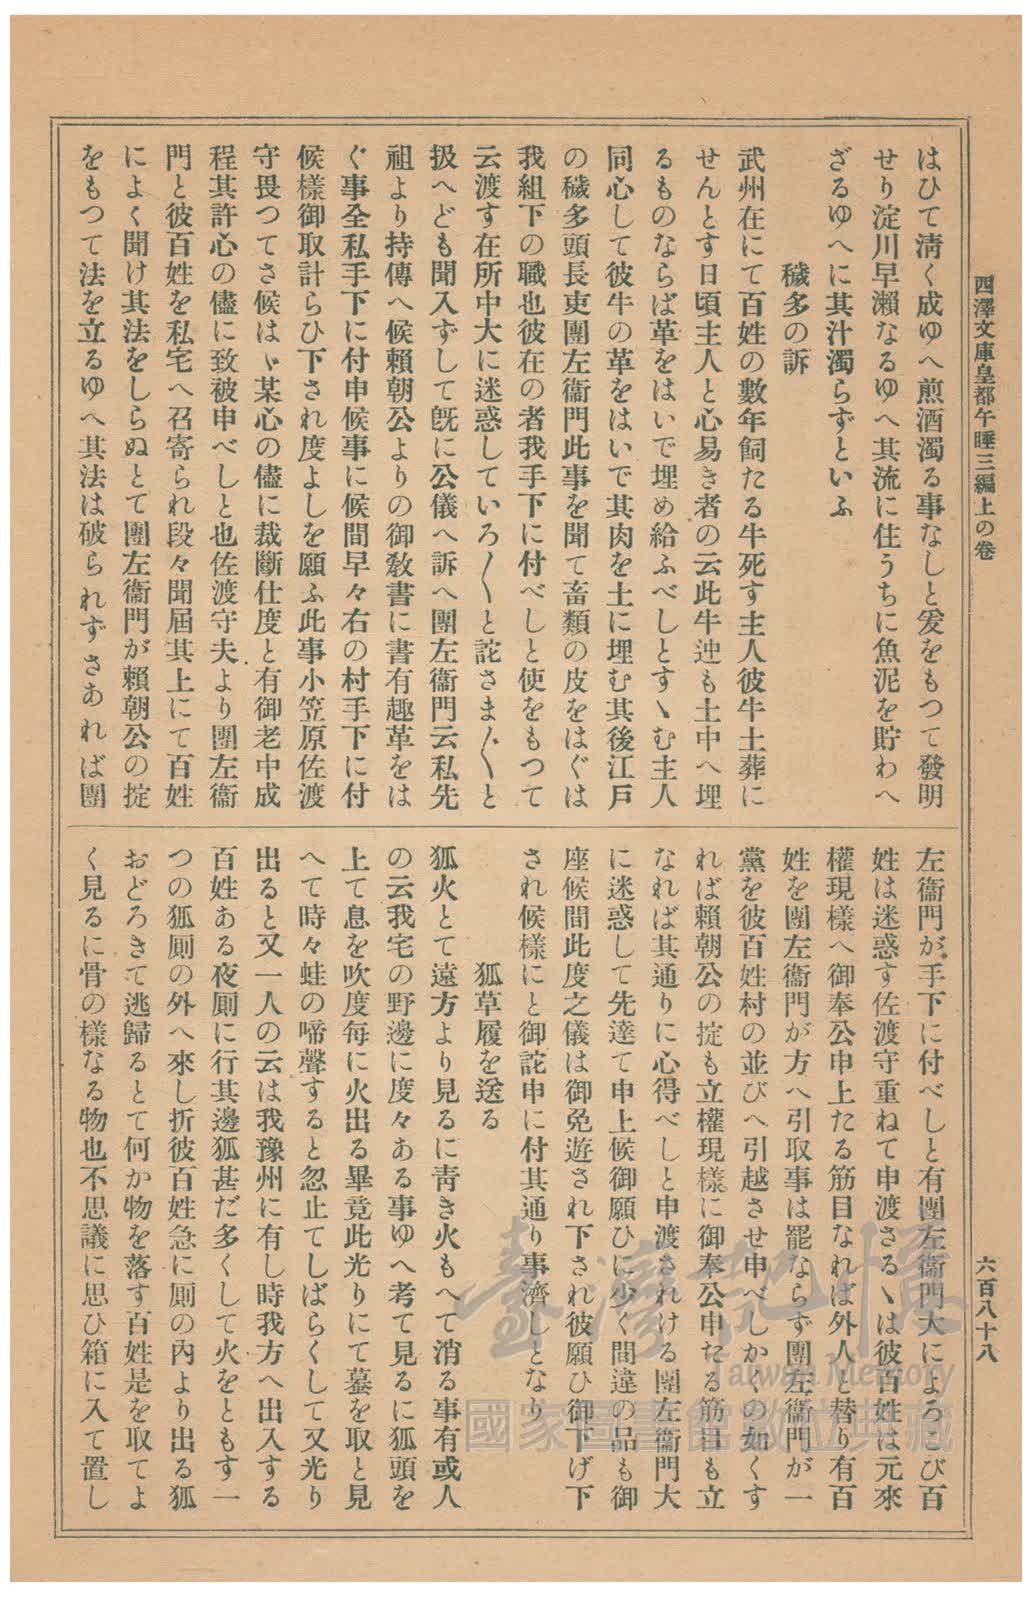 四澤文庫皇都午睡三編上の卷
はひて淸く成ゆへ煎酒濁る事なしと爰をもつて發明
せり淀川早瀨なるゆへ其流に住うちに魚泥を貯わへ
ざるゆへに其汁濁らずといふ
穢多の訴
武州在にて百姓の數年飼たる牛死す主人彼牛土葬に
せんとす日頃主人と心易き者の云此牛迚も土中へ埋
るものならば革をはいで埋め給ふべしとすゝむ主人
同心して彼牛の革をはいで其肉を土に埋む其後江戶
の穢多頭長吏團左衞門此事を聞て畜類の皮をはぐは
我組下の職也彼在の者我手下に付べしと使をもつて
云渡す在所中大に迷惑していろ〱と詫さま〲と
扱へども聞入ずして旣に公儀へ訴へ團左衞門云私先
祖より持傳へ候賴朝公よりの御敎書に書有趣革をは
ぐ事全私手下に付申候事に候間早々右の村手下に付
候樣御取計らひ下され度よしを願ふ此事小笠原佐渡
守畏つてさ候はゞ某心の儘に裁斷仕度と有御老中成
程其許心の儘に致被申べしと也佐渡守夫より團左衞
門と彼百姓を私宅へ召寄られ段々聞屆其上にて百姓
によく聞け其法をしらぬとて團左衞門が賴朝公の掟
をもつて法を立るゆへ其法は破られずさあれば團
左衞門が手下に付べしと有團左衞門大によろこび百
姓は迷惑す佐渡守重ねて申渡さるゝは彼百姓は元來
權現樣へ御奉公申上たる筋目なれば外人と替り有百
姓を團左衞門が方へ引取事は罷ならず團左衞門が一
黨を彼百姓村の並びへ引越させ申べしかくの如くす
れば賴朝公の掟も立權現樣に御奉公申たる筋目も立
なれば其通りに心得べしと申渡されける團左衞門大
に迷惑して先達て申上候御願ひに少く間違の品も御
座候間此度之儀は御免遊され下され彼願ひ御下げ下
され候樣にと御詫申に付其通り事濟しとなり
狐草履を送る
狐火とて遠方より見るに靑き火もへて消る事有或人
の云我宅の野邊に度々ある事ゆへ考て見るに狐頭を
上て息を吹度每に火出る畢竟此光りにて蟇を取と見
へて時々蛙の啼聲すると忽止てしばらくして又光り
出ると又一人の云は我豫州に有し時我方へ出入する
百姓ある夜厠に行其邊狐甚だ多くして火をともす一
つの狐厠の外へ來し折彼百姓急に厠の內より出る狐
おどろきて逃歸るとて何か物を落す百姓是を取てよ
く見るに骨の樣なる物也不思議に思ひ箱に入て置し
六百八十八
臺灣記憶
Taiwan Memory
國家圖書館數位典藏